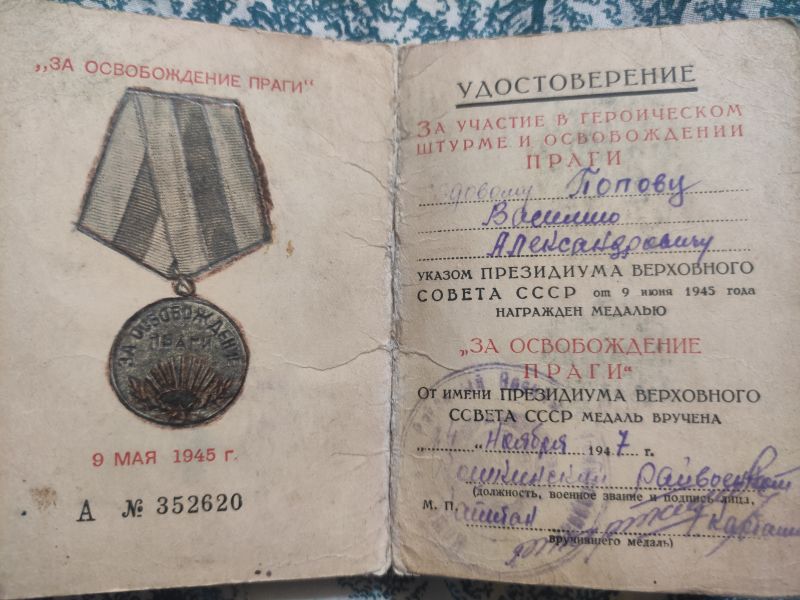 „ЗА ОСВОБОЖДЕНИЕ ПРАГИ“
ЗА ОСВОБОЖДЕНИЕ
ПРАГИ
9 МАЯ 1945 г.
А № 352620
УДОСТОВЕРЕНИЕ
ЗА УЧАСТИЕ В ГЕРОИЧЕСКОМ
ШТУРМЕ И ОСВОБОЖДЕНИИ
ПРАГИ
Попову
Василию
Александровичу
УКАЗОМ ПРЕЗИДИУМА ВЕРХОВНОГО
СОВЕТА СССР от 9 июня 1945 года
НАГРАЖДЕН МЕДАЛЬЮ
„ЗА ОСВОБОЖДЕНИЕ
ПРАГИ“
От имени ПРЕЗИДИУМА ВЕРХОВНОГО
ССВЕТА СССР МЕДАЛЬ ВРУЧЕНА
„ “ Ноября 1947 г.
Райвоенком
(должность, военное звание и подпись лица,
М. П.
вручившего медаль)